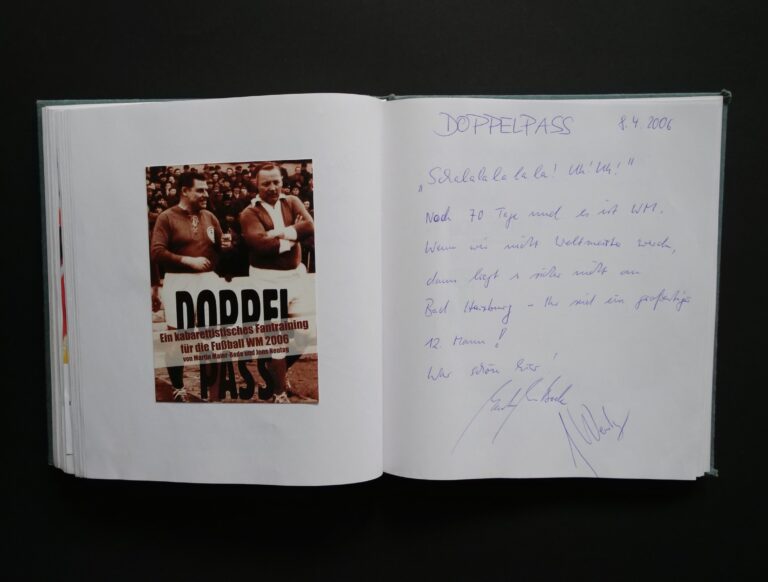 DOPPEL
Ein kabarettistisches Fantraining
für die Fußball WM 2006
von Martin Maier-Bode und Jens Neutag
PASS
DOPPELPASS 8.4.2006
„Schalalalala! Uh! Uh!"
Noch 70 Tage und es ist WM.
Wenn wir nicht Weltmeister werden,
dann liegt es sicher nicht an
Bad Harzburg – Ihr seid ein großartiger
12. Mann!
War schön hier!